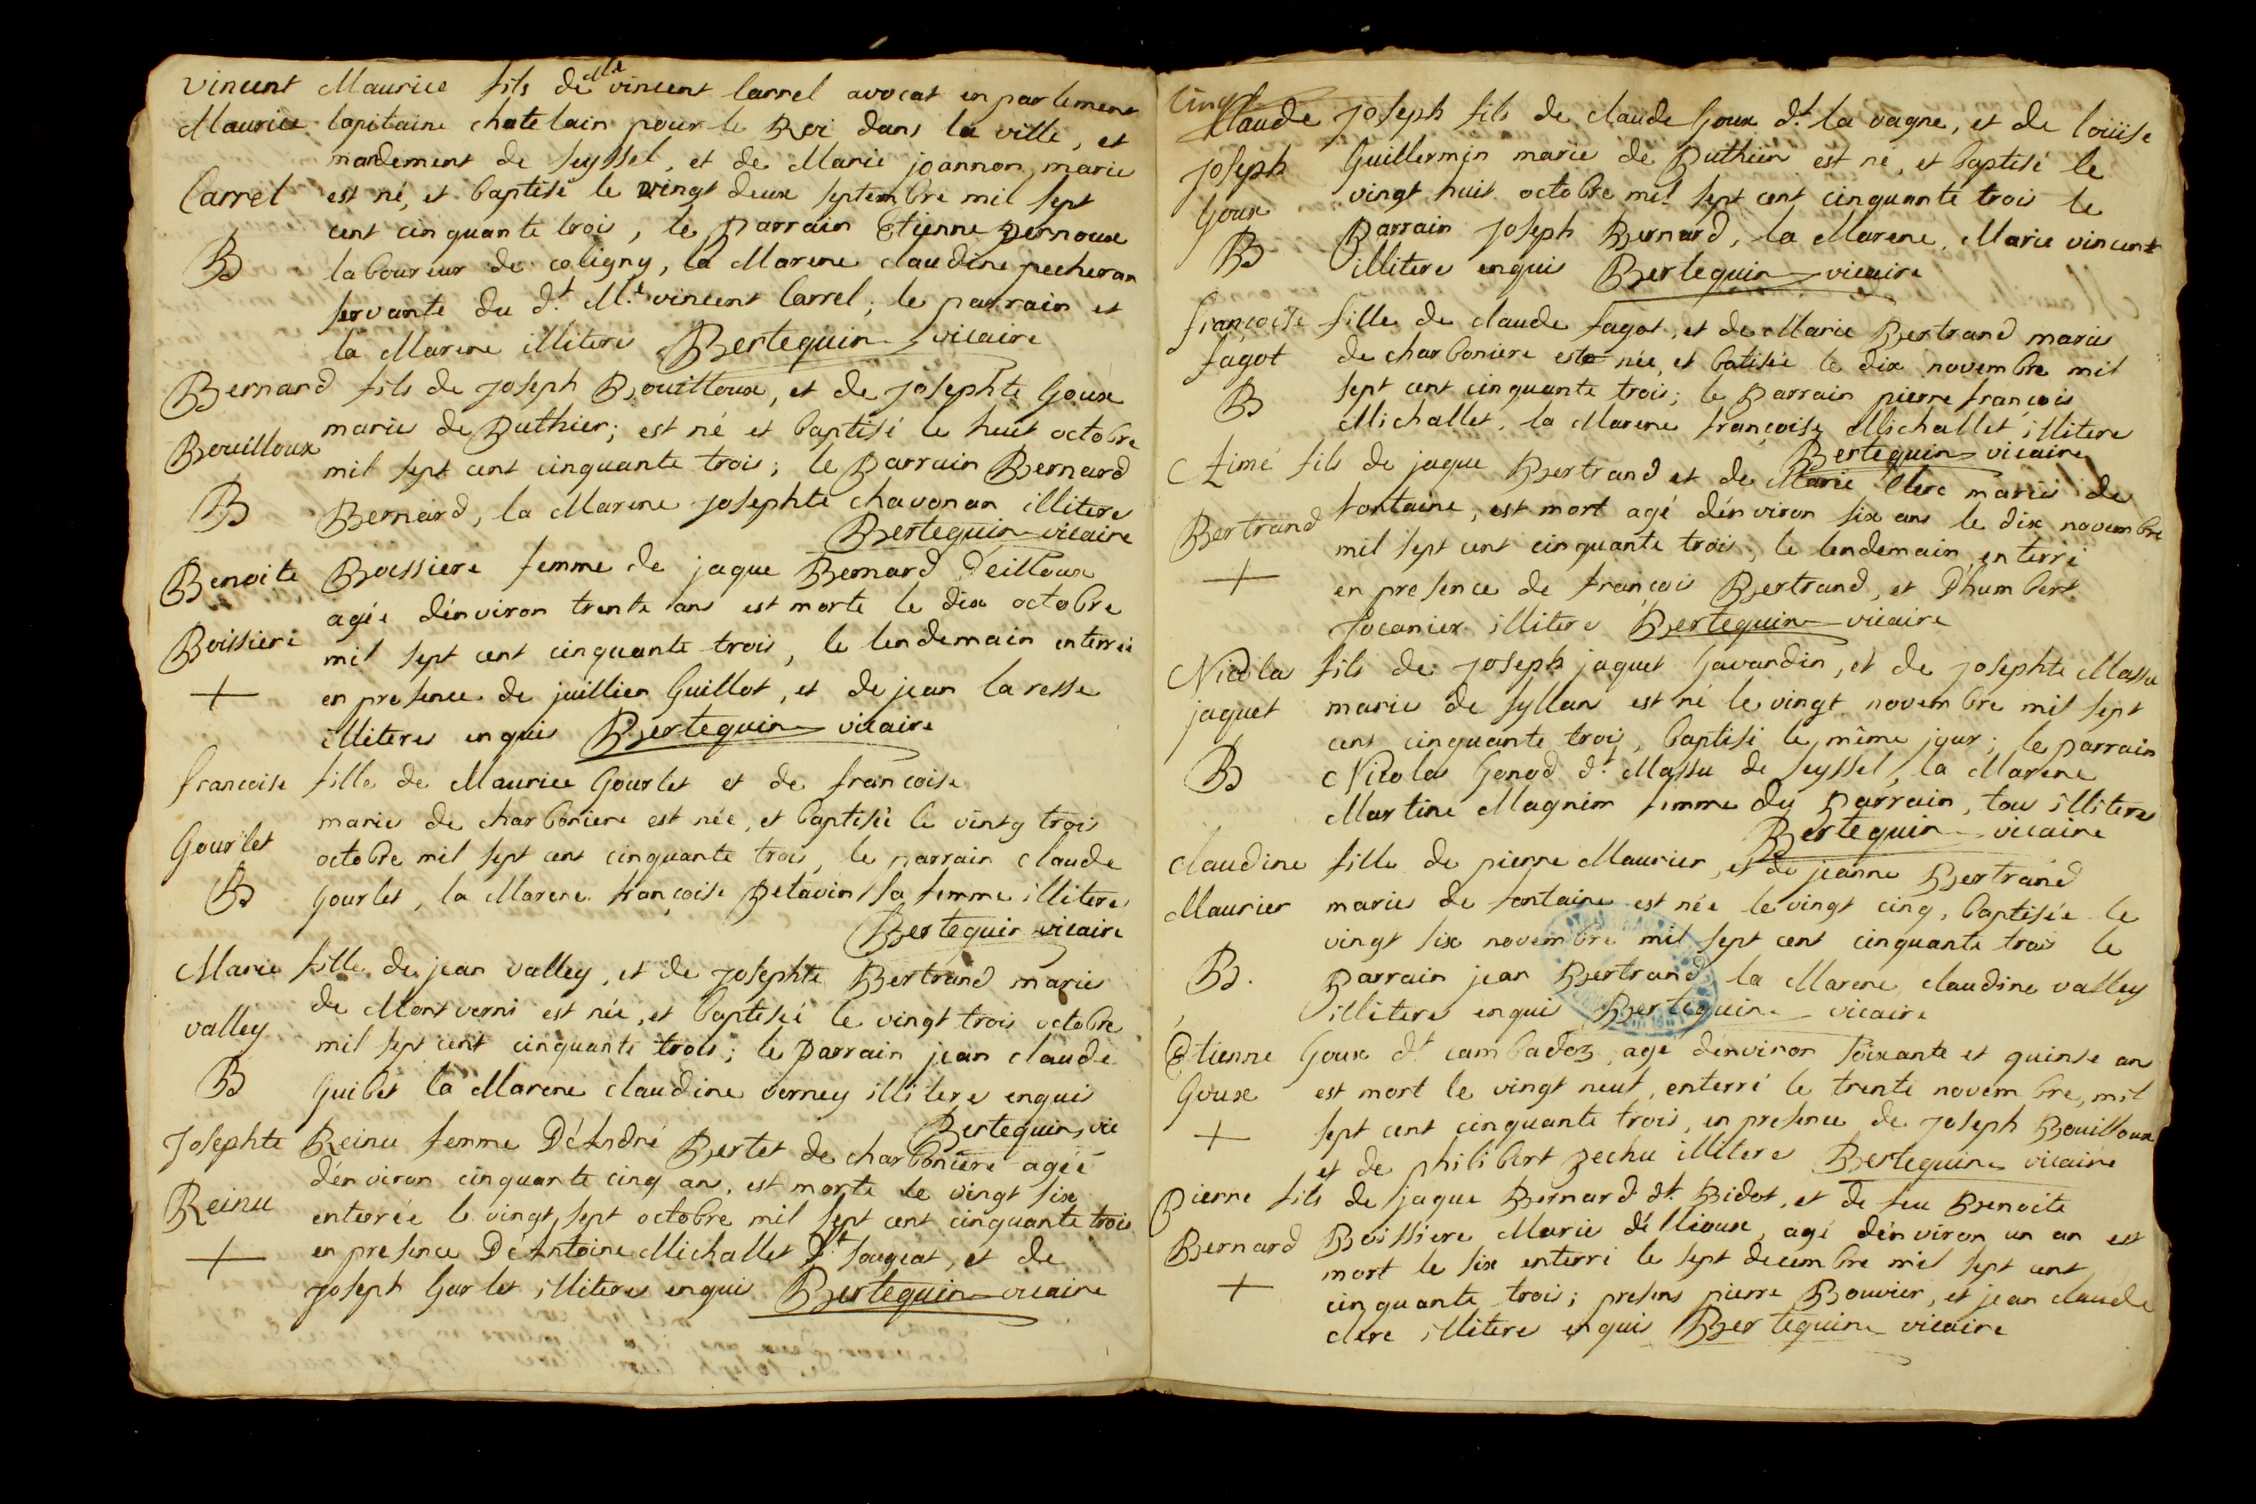 Vincent Maurice fils de Mre vincent Carrel avocat en parlement
Maurice Capitaine chatelain pour le Roi dans la ville, et
mandement de seyssel, et de Marie joannon, marie
Carrel est né, et baptisé le vingt deux septembre mil sept
cent cinquante trois, le parrain Etienne pernoux
B laboureur de coligny, la Marene claudine pecheran
servante du dt. Mre vincent Carrel; le parrain et
la Marene illiteres Bertequin vicaire
Bernard fils de joseph Bouilloux, et de josephte Goux
mariés de Puthier; est né et baptisé le huit octobre
Bouilloux mil sept cent cinquante trois; le Parrain Bernard
B Bernard, la Marene josephte chavonan illiteres
Bertequin vicaire
Benoite Boissiere femme de jaque Bernard d'éilloux
agée d'énviron trente ans est morte le dix octobre
Boissiere mil sept cent cinquante trois, le lendemain enterrée
+ en presence de juillien Guillot, et de jean laresse
illiteres enquis Bertequin vicaire
francoise fille de Maurice Gourlet et de francoise
mariés de charboniere est née, et baptisée le vintg trois
Gourlet octobre mil sept cent cinquante trois, le parrain claude
B Gourlet, la Marene françoise Petavin sa femme illiteres
Bertequin vicaire
Marie fille de jean valley, et de josephte Bertrand mariés
de Montverni est née, et baptisée le vingt trois octobre
valley mil sept cent cinquante trois; le parrain jean claude
B Guibet la Marene claudine verney illiteres enquis
Bertequin, vic
Josephte Reinu femme D'éAndré Bertet de charboniere agée
d'énviron cinquante cinq ans, est morte le vingt six
Reinu enterrée le vingt sept octobre mil sept cent cinquante trois
+ en presence D'éAntoine Michallet dt. fougeat, et de
joseph Garlet illiteres enquis Bertequin vicaire
Cinq
Claude joseph fils de claude Goux dt. la vagne, et de loüise
joseph Guillermin mariés de Puthier est né, et baptisé le
Goux vingt huit octobre mil sept cent cinquante trois le
B Parrain joseph Bernard, la Marene, Marie vincent
illiteres enquis Bertequin vicaire
françoise fille de claude fagot, et de Marie Bertrand mariés
fagot de charboniere est née, et batisée le dix novembre mil
B sept cent cinquante trois; le Parrain pierre françois
Michallet, la Marene françoise Michallet illiteres
Bertequin vicaire
Aimé fils de jaque Bertrand et de Marie Clerc mariés de
Bertrand fontaine, est mort agé d'énviron six ans le dix novembre
mil sept cent cinquante trois, le lendemain enterré
+ en presence de françois Bertrand, et D'humbert
Jocanier illiteres Bertequin vicaire
Nicola fils de joseph jaquet Gavandin, et de josephte Massu
jaquet mariés de syllan est né le vingt novembre mil sept
cent cinquante trois, baptisé le même jour; le parrain
B Nicolas Genod dt. Massu de seyssel, la Marene
Martine Magnim femme dy parrain, tous illiteres
Bertequin vicaire
claudine fille de pierre Maurier, et de jeanne Bertrand
Maurier mariés de fontaine est née le vingt cinq, baptisée le
vingt six novembre mil sept cent cinquante trois le
B. Parrain jean Bertrand, la Marene claudine valley
illiteres enquis Bertequin vicaire
Etienne Goux dt cambadoz, agé d'environ soixante et quinse ans
Goux est mort le vingt neuf, enterré le trente novembre, mil
+ sept cent cinquante trois, en presence de joseph Bouilloux
et de philibert pechu illiteres Bertequin vicaire
Pierre fils de jaque Bernard dt. Bidot, et de feu Benoite
Bernard Boissiere Mariés d'élioux, agé d'énviron un an est
+ mort le six enterré le sept decembre mil sept cent
cinquante trois; presens pierre Bouvier, et jean claude
clere illiteres enquis Bertequin vicaire